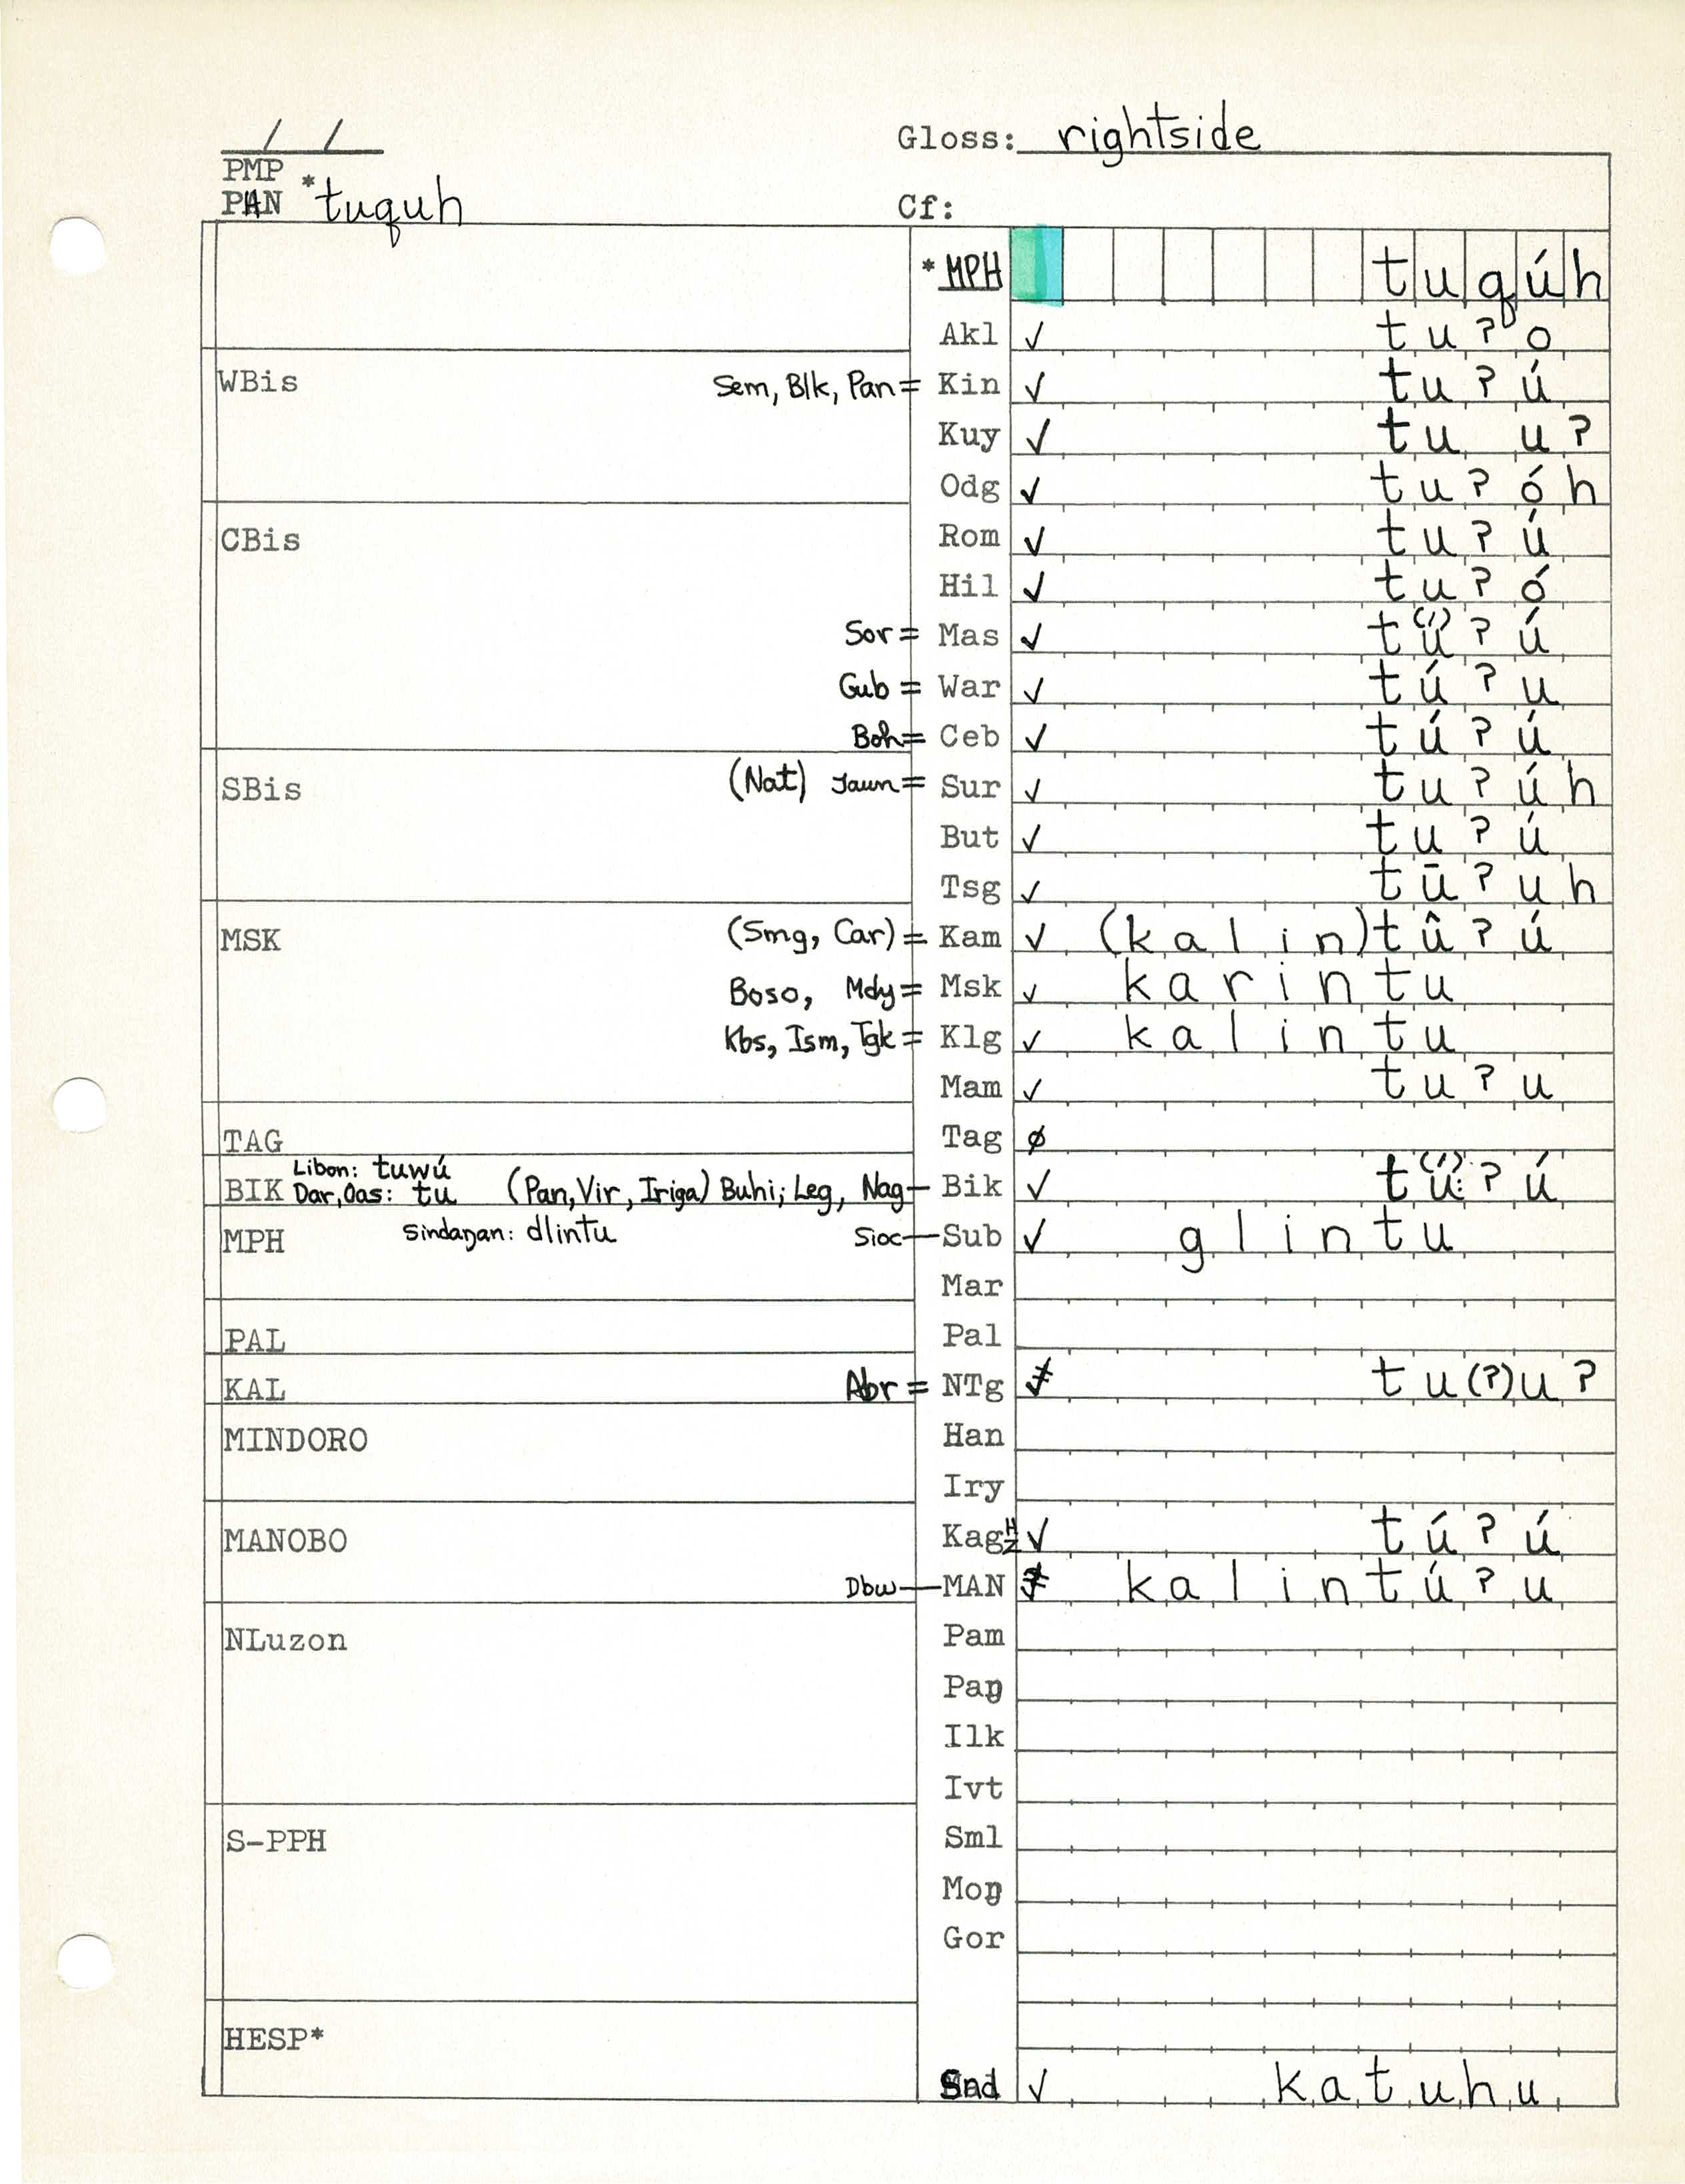 / /
Gloss: rightside
PMP
PAN *tuquh
Cf:
*MPH tuqúh
Akl ✓ tuʔo
WBis Sem, Blk, Pan = Kin ✓ tuʔú
Kuy ✓ tu uʔ
Odg ✓ tuʔóh
CBis Rom ✓ tuʔú
Hil ✓ tuʔó
Sor = Mas ✓ tu(́)ʔú
Gub = War ✓ túʔu
Boh = Ceb ✓ túʔú
SBis (Nat) Jaun = Sur ✓ tuʔúh
But ✓ tuʔú
Tsg ✓ tūʔuh
MSK (Smg, Car) = Kam ✓ (kalin)tûʔú
Boso, Mdy = Msk ✓ karintu
Kbs, Ism, Tgk = Klg ✓ kalintu
Mam ✓ tuʔu
TAG Tag ø
Libon: tuwú
BIK Dar, Oas: tu (Pan, Vir, Iriga) Buhi; Leg, Nag — Bik ✓ tu(́)ːʔú
MPH Sindaŋan: dlintu Sioc — Sub ✓ glintu
Mar
PAL Pal
KAL Abr = NTg ≠ tu(ʔ)uʔ
MINDORO Han
Iry
MANOBO Kag ✓ túʔú
Dbw — MAN ≠ kalintúʔu
NLuzon Pam
Paŋ
Ilk
Ivt
S-PPH Sml
Moŋ
Gor
HESP*
Snd ✓ katuhu